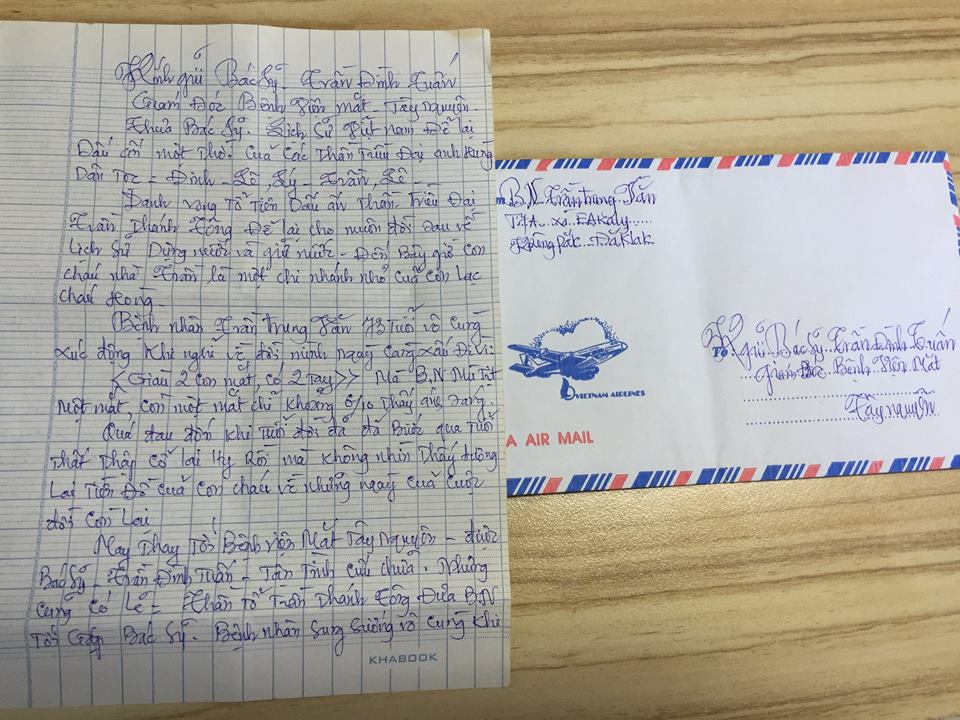 Kính gửi Bác Sỹ - Trần Đình Tuấn
Giám Đốc Bệnh Viện mắt - Tây nguyên.
Thưa Bác Sỹ. Lịch Sử Việt nam Để lại
Dấu ấn một thời của Các Thần Triều Đại anh hùng
Dân Tộc = Đinh - Lê, Lý - Trần, Lê
Danh vang Tổ Tiên Dấu ấn Thần Triều Đại
Trần Thánh Tông Để lại cho muôn đời sau về
Lịch Sử Dựng nước và giữ nước - Đến Bây giờ con
cháu nhà Trần là một chi nhánh nhỏ của con Lạc
cháu Hồng.
Bệnh nhân Trần Trung Tấn 73 Tuổi vô Cùng
xúc động khi nghĩ về đời mình ngày càng xấu Đi Vì
<Giàu 2 con mắt, có 2 Tay>> Mà B.N Mù Tịt
Một mắt, còn một mắt chỉ khoảng 6/10 Thấy
Quá đau đớn khi Tuổi đời đã Bước qua Tuổi
Thất Thập Cổ lai Hy Rồi mà không nhìn Thấy Tương
Lai Tiền Đồ của con cháu về những ngày của cuộc
đời còn Lại
May Thay Tới Bệnh viện Mắt Tây nguyên - được
Bác Sỹ - Trần Đình Tuấn - Tận Tình cứu chữa. Nhưng
cũng có Lẽ = Thần Tổ Trần Thánh Tông Đưa B.N
Tới Gặp Bác Sỹ. Bệnh nhân Sung Sướng vô cùng khi
KHABOOK
B.N Trần Trung Tấn
xã EAKaly
Krông Pắc - Đăklak
VIETNAM AIRLINES
To: K gửi Bác Sỹ Trần Đình Tuấn
Giám Đốc Bệnh Viện Mắt
Tây nguyên
A AIR MAIL